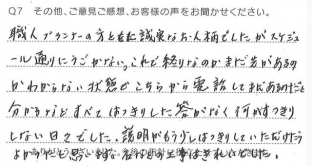 Q7 その他、ご意見ご感想、お客様の声をお聞かせください。
職人プランナーの方と共に誠実なお人柄でしたが スケジュ
ール通りにうごかない。これで終りなのか まだ者があるの
かわからない 状態で こちらから 電話して まだあるのだと
分かるなど すべてはっきりした答がなく 何かすっきり
しない日々でした。説明がもう少しはっきりしていただけたら
よかったと思います。